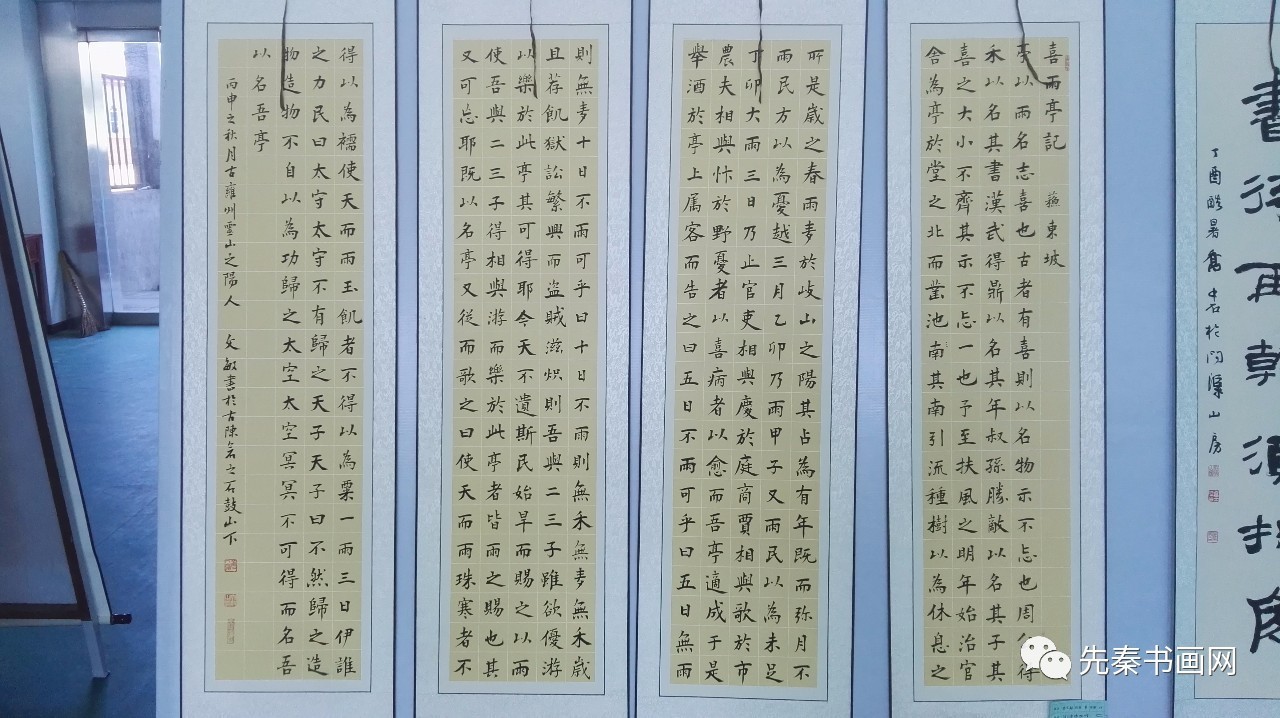 書 再乾須
丁酉酷暑 山房
喜雨亭記 蘇東坡
亭以雨名志喜也古者有喜則以名物示不忘也周公得
禾以名其書漢武得鼎以名其年叔孫勝敵以名其子其
喜之大小不齊其示不忘一也予至扶風之明年始治官
舍為亭於堂之北而鑿池南其南引流種樹以為休息之
所是歲之春雨麥於岐山之陽其占為有年既而弥月不
雨民方以為憂越三月乙卯乃雨甲子又雨民以為未足
丁卯大雨三日乃止官吏相與慶於庭商賈相與歌於市
農夫相與忭於野憂者以喜病者以愈而吾亭適成于是
舉酒於亭上属客而告之曰五日不雨可乎曰五日無雨
則無麥十日不雨可乎曰十日不雨則無禾無麥無禾歲
且荐飢獄訟繁興而盜賊滋熾則吾與二三子雖欲優游
以樂於此亭其可得耶今天不遺斯民始旱而賜之以雨
使吾與二三子得相與游而樂於此亭者皆雨之賜也其
又可忘耶既以名亭又從而歌之曰使天而雨珠寒者不
得以為襦使天而雨玉飢者不得以為粟一雨三日伊誰
之力民曰太守太守不有歸之天子天子曰不然歸之造
物造物不自以為功歸之太空太空冥冥不可得而名吾
以名吾亭
丙申之秋月古雍州靈山之陽人 文敏書於古陳倉之石鼓山下
先秦书画网